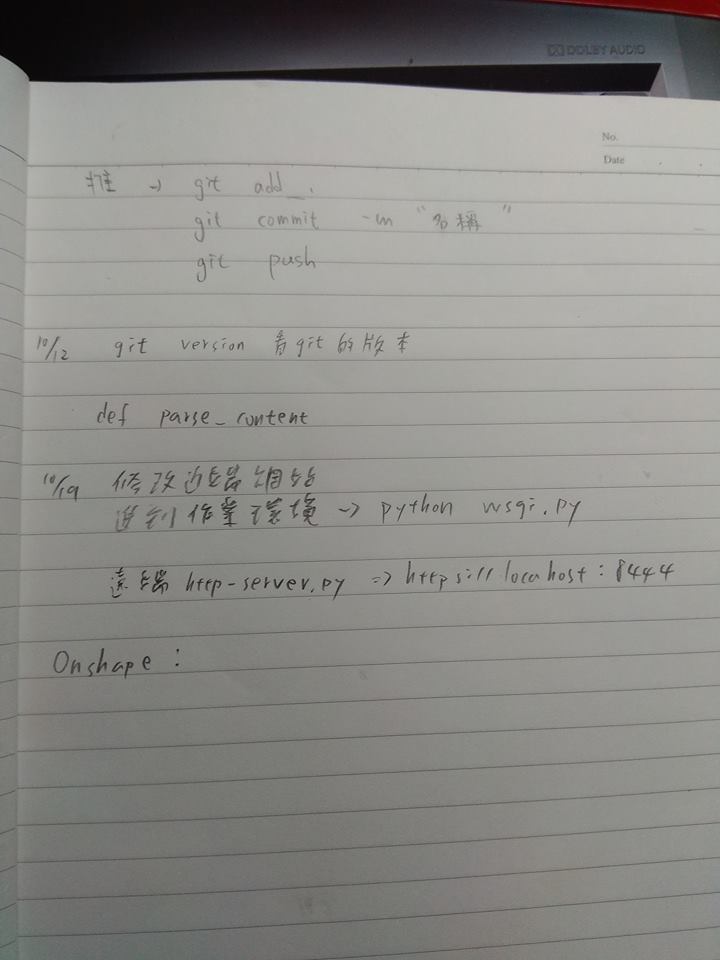 DOLBY AUDIO
No.
Date . .
推 → git add _ .
git commit -m "名稱"
git push
10/12 git version 看git的版本
def parse_content
10/19 修改近端網站
進到作業環境 → python wsgi.py
遠端 http-server.py => https://locahost:8444
Onshape :